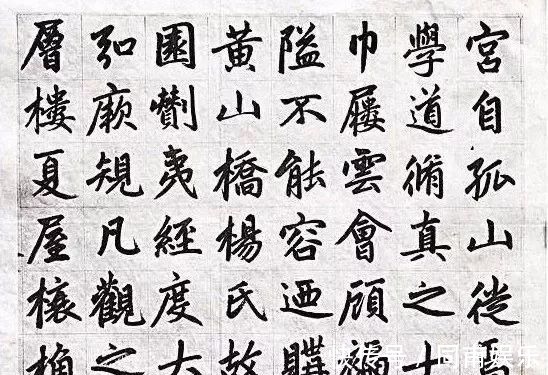 宮自孤山徙焉
學道脩真之士
巾屨雲會顧
隘不能容迺購
黃山橋楊氏故
園劗夷經度大
弘厥規凡觀之
層樓夏屋榱桷